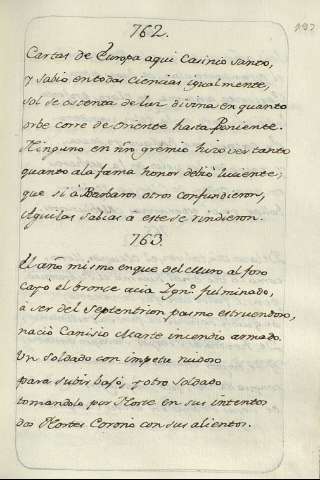 762.
Cartas de Europa aqui Casinio santo,
y sabio en todas ciencias igualmente,
sol se ostenta de luz divina en quanto
orbe corre de oriente hasta Poniente.
Ninguno en ñro gremio hizo ver tanto
quanto a la fama honor debió luciente;
que si à Barbaros otros confundieron,
Aguilas sabias à este se rindieron.
763.
El año mismo en que del Muro al foro
cayó el bronze acia fulminado,
à ser del Septentrion pasmo estruendoro,
nació Canisio Marte incendio armado.
Un soldado con impetu
para subir bajó, y otro soldado
tomandolo por Norte en sus intentos
dos Nortes Coronó con sus alientos.